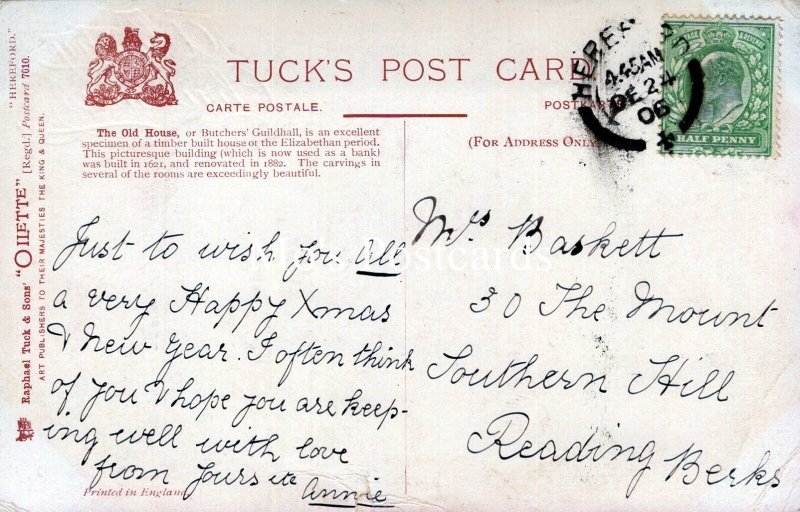 TUCK'S POST CARD
CARTE POSTALE.
POSTKARTE
The Old House, or Butchers' Guildhall, is an excellent
specimen of a timber built house of the Elizabethan period.
This picturesque building (which is now used as a bank)
was built in 1621, and renovated in 1882. The carvings in
several of the rooms are exceedingly beautiful.
(FOR ADDRESS ONLY
HEREFORD
4.45AM
DE 24
06
HALF PENNY
Just to wish you All
a very Happy Xmas
& New Year. I often think
of you & hope you are keep-
ing well with love
from yours etc
Annie
Mrs Baskett
30 The Mount
Southern Hill
Reading Berks
Printed in England
"HEREFORD."
Raphael Tuck & Sons' "OILETTE" [Regd.] Postcard 7010.
ART PUBLISHERS TO THEIR MAJESTIES THE KING & QUEEN.